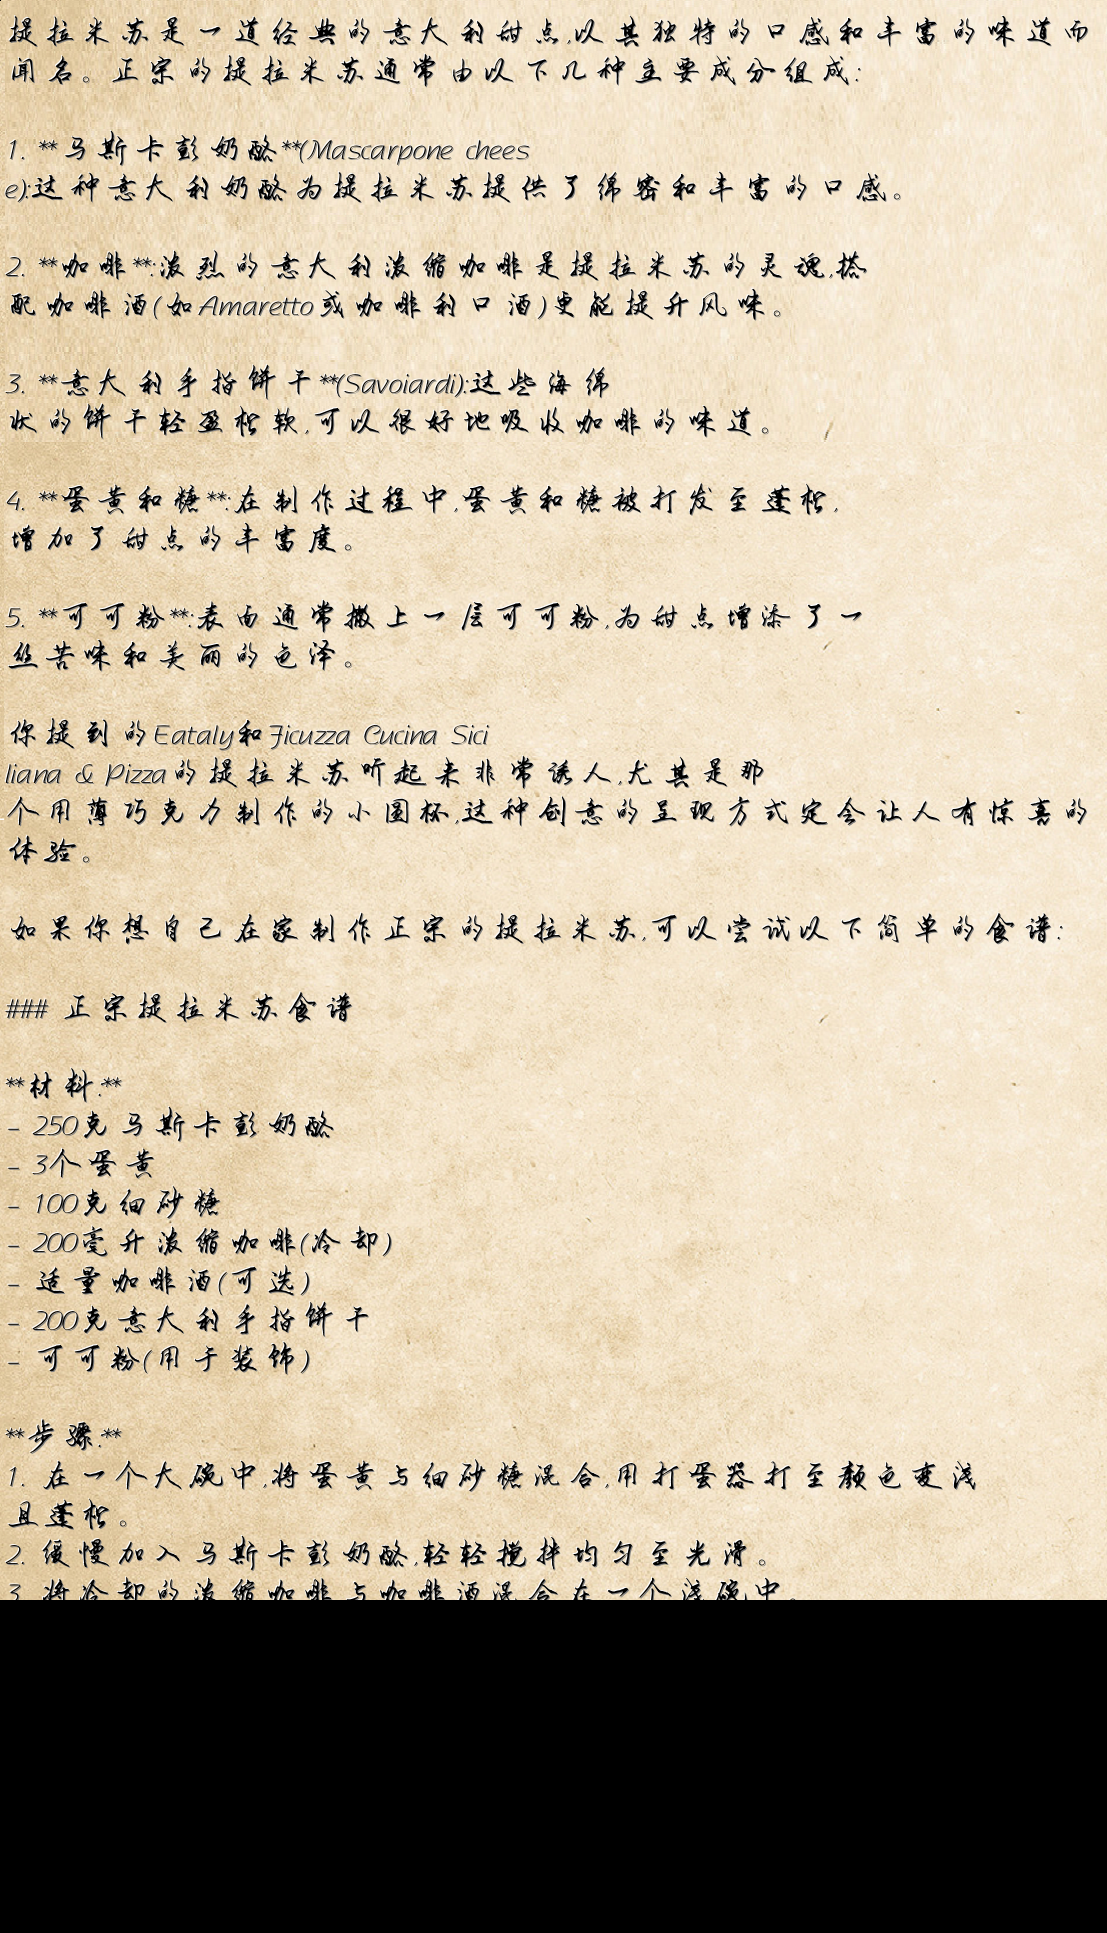 提拉米苏是一道经典的意大利甜点,以其独特的口感和丰富的味道而
闻名。正宗的提拉米苏通常由以下几种主要成分组成:
1. **马斯卡彭奶酪**(Mascarpone chees
e):这种意大利奶酪为提拉米苏提供了绵密和丰富的口感。
2. **咖啡**:浓烈的意大利浓缩咖啡是提拉米苏的灵魂,搭
配咖啡酒(如Amaretto或咖啡利口酒)更能提升风味。
3. **意大利手指饼干**(Savoiardi):这些海绵
状的饼干轻盈松软,可以很好地吸收咖啡的味道。
4. **蛋黄和糖**:在制作过程中,蛋黄和糖被打发至蓬松,
增加了甜点的丰富度。
5. **可可粉**:表面通常撒上一层可可粉,为甜点增添了一
丝苦味和美丽的色泽。
你提到的Eataly和Ficuzza Cucina Sici
liana & Pizza的提拉米苏听起来非常诱人,尤其是那
个用薄巧克力制作的小圆杯,这种创意的呈现方式定会让人有惊喜的
体验。
如果你想自己在家制作正宗的提拉米苏,可以尝试以下简单的食谱:
### 正宗提拉米苏食谱
**材料:**
- 250克马斯卡彭奶酪
- 3个蛋黄
- 100克细砂糖
- 200毫升浓缩咖啡(冷却)
- 适量咖啡酒(可选)
- 200克意大利手指饼干
- 可可粉(用于装饰)
**步骤:**
1. 在一个大碗中,将蛋黄与细砂糖混合,用打蛋器打至颜色变浅
且蓬松。
2. 缓慢加入马斯卡彭奶酪,轻轻搅拌均匀至光滑。
3. 将冷却的浓缩咖啡与咖啡酒混合在一个浅碗中。